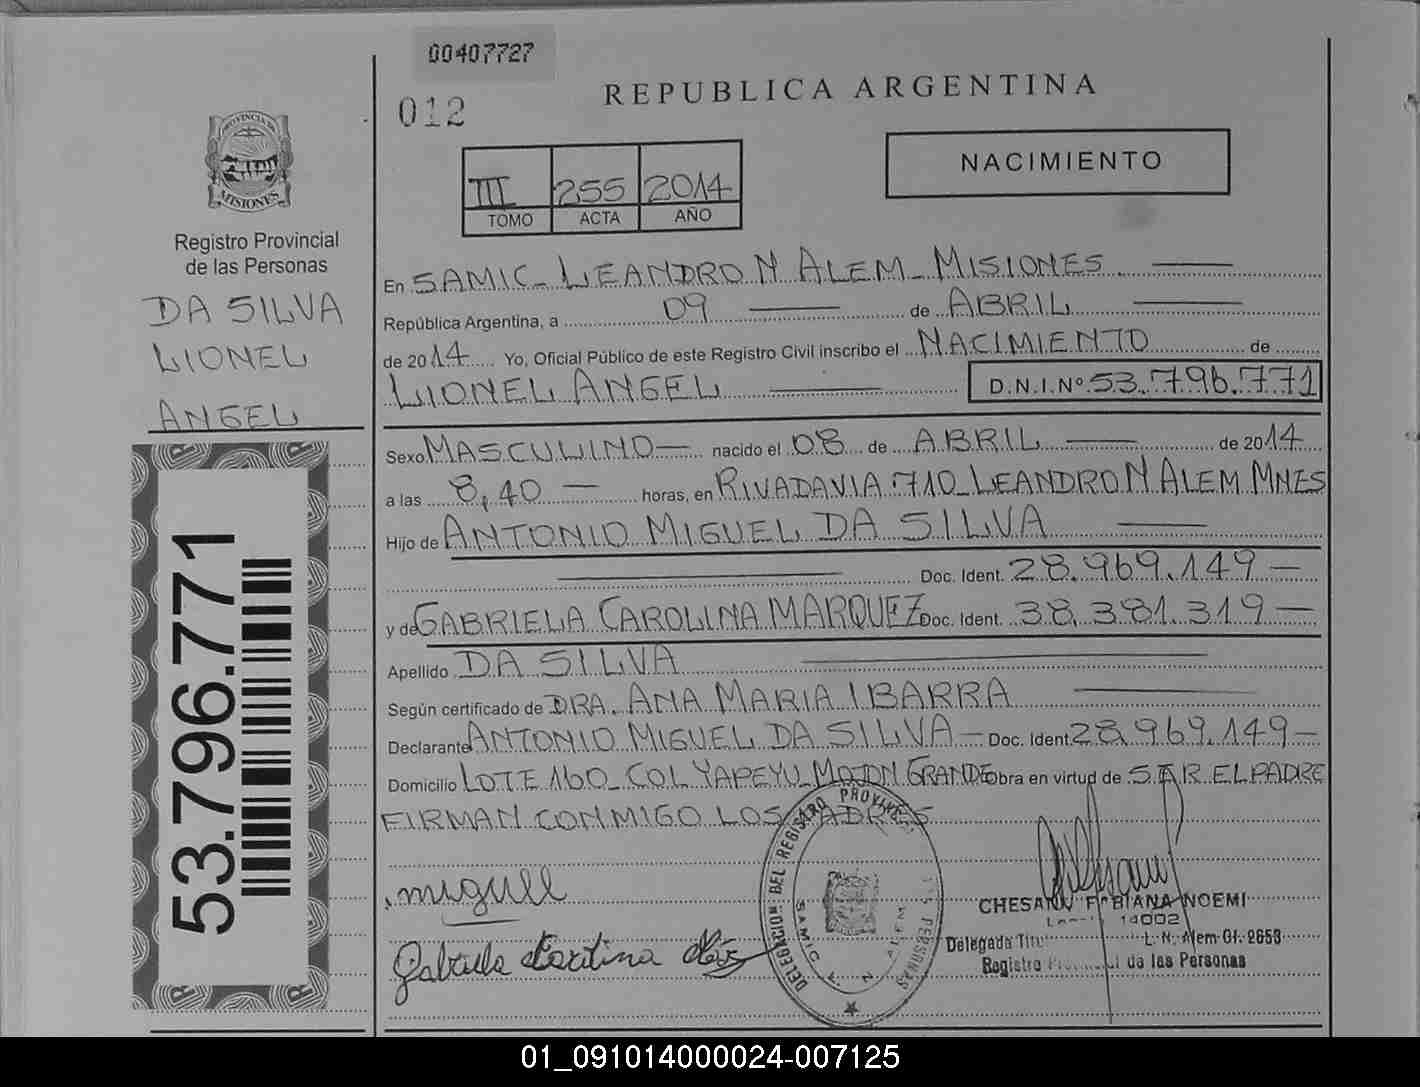 00407727
012
REPUBLICA ARGENTINA
PROVINCIA DE
MISIONES
Registro Provincial
de las Personas
DA SILVA
LIONEL
ANGEL
53.796.771
III 255 2014
TOMO ACTA AÑO
NACIMIENTO
En SAMIC_ LEANDRO N ALEM_ MISIONES
República Argentina, a 09 de ABRIL
de 2014 Yo, Oficial Público de este Registro Civil inscribo el NACIMIENTO de
LIONEL ANGEL D.N.I.Nº 53.796.771
Sexo MASCULINO nacido el 08 de ABRIL de 2014
a las 8,40 horas, en RIVADAVIA 710_LEANDRO N ALEM MNES
Hijo de ANTONIO MIGUEL DA SILVA
Doc. Ident. 28.969.149
y de GABRIELA CAROLINA MARQUEZ Doc. Ident. 38.381.319
Apellido DA SILVA
Según certificado de DRA. ANA MARIA IBARRA
Declarante ANTONIO MIGUEL DA SILVA Doc. Ident. 28.969.149
Domicilio LOTE 160_ COL YAPEYU_ MOJON GRANDE Obra en virtud de S.A.R. EL PADRE
FIRMAN CONMIGO LOS PADRES
miguel
Gabriela
DELEGACION DEL REGISTRO PROVINCIAL
PERSONAS
SAMIC L. N. ALEM
FABIANA NOEMI
14002
Delegada L. N. Alem Of. 2653
Registro de las Personas
01_091014000024-007125